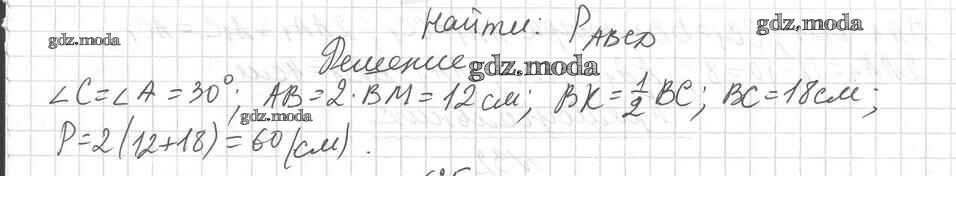 Найти: P ABCD
gdz.moda
gdz.moda
Решение
gdz.moda
∠C=∠A=30°; AB=2·BM=12см; BK=½BC; BC=18см;
gdz.moda
P=2(12+18)=60(см).